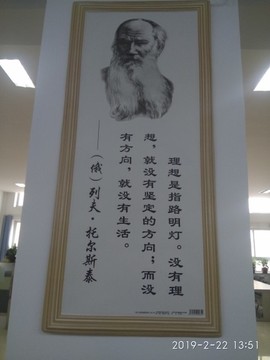 理想是指路明灯。没有理
想，就没有坚定的方向；而没
有方向，就没有生活。
——（俄）列夫·托尔斯泰
2019-2-22 13:51